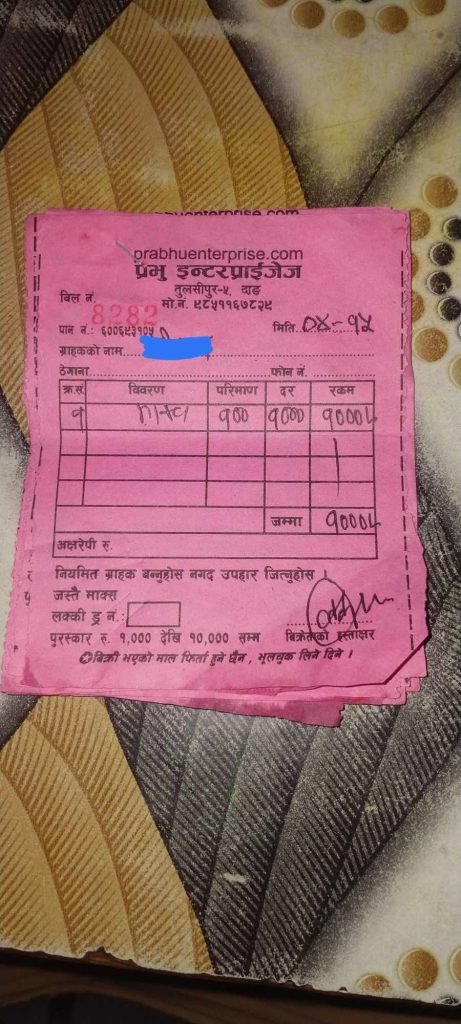 prabhuenterprise.com
prabhuenterprise.com
प्रभु इन्टरप्राईजेज
तुलसीपुर-५, दाङ
बिल नं. 8282 मो.नं. ९८५११६७८२९
पान नं.: ६००६९३१०५ मिति. ०४-१५
ग्राहकको नाम
ठेगाना फोन नं.
क्र.सं. विवरण परिमाण दर रकम
१ १०० १००० १०००
जम्मा १०००
अक्षरेपी रु.
नियमित ग्राहक बन्नुहोस नगद उपहार जित्नुहोस ।
जस्तै माक्स
लक्की ड्र नं.:
पुरस्कार रु. १,००० देखि १०,००० सम्म बिक्रेताको हस्ताक्षर
बिक्री भएको माल फिर्ता हुने छैन, भूलचुक लिने दिने ।